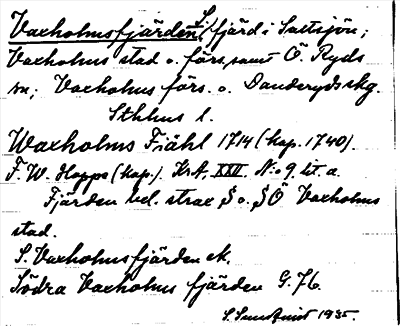 Vaxholmsfjärden, S., fjärd i Saltsjön;
Vaxholms stad o. förs. samt Ö. Ryds
sn; Vaxholms förs. o. Danderyds skg.
Sthlms l.
Waxholms Fiähl 1714 (kop. 1740).
F. W. Hoppe (kop.). KrA. XXII. N:o 9. lit. a.
Fjärden bel. strax S o. SÖ Vaxholms
stad.
S. Vaxholmsfjärden ek.
Södra Vaxholms fjärden G. 76.
S. Sundquist 1935.